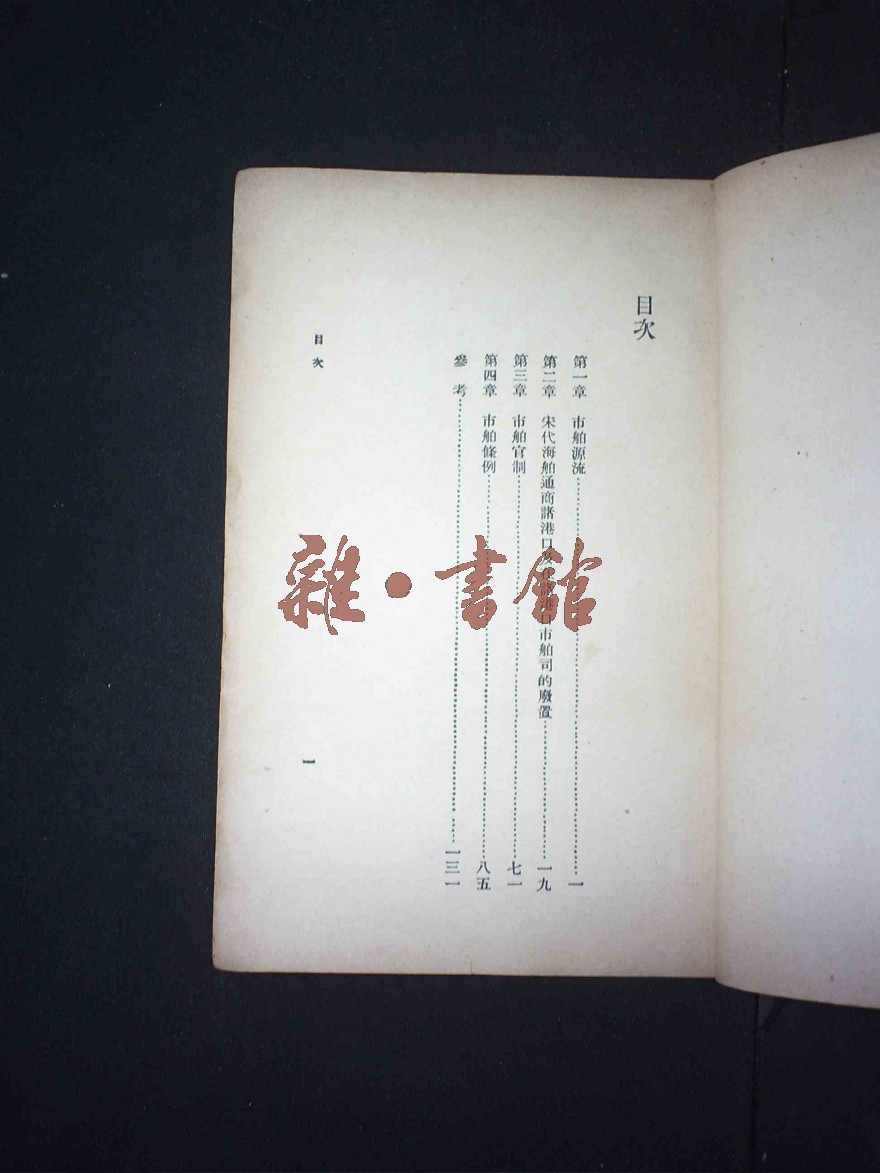 目次
第一章 市舶源流……一
第二章 宋代海舶通商諸港口及港口市舶司的廢置……一九
第三章 市舶官制……七一
第四章 市舶條例……八五
參考……一三一
目次
一
雜·書館